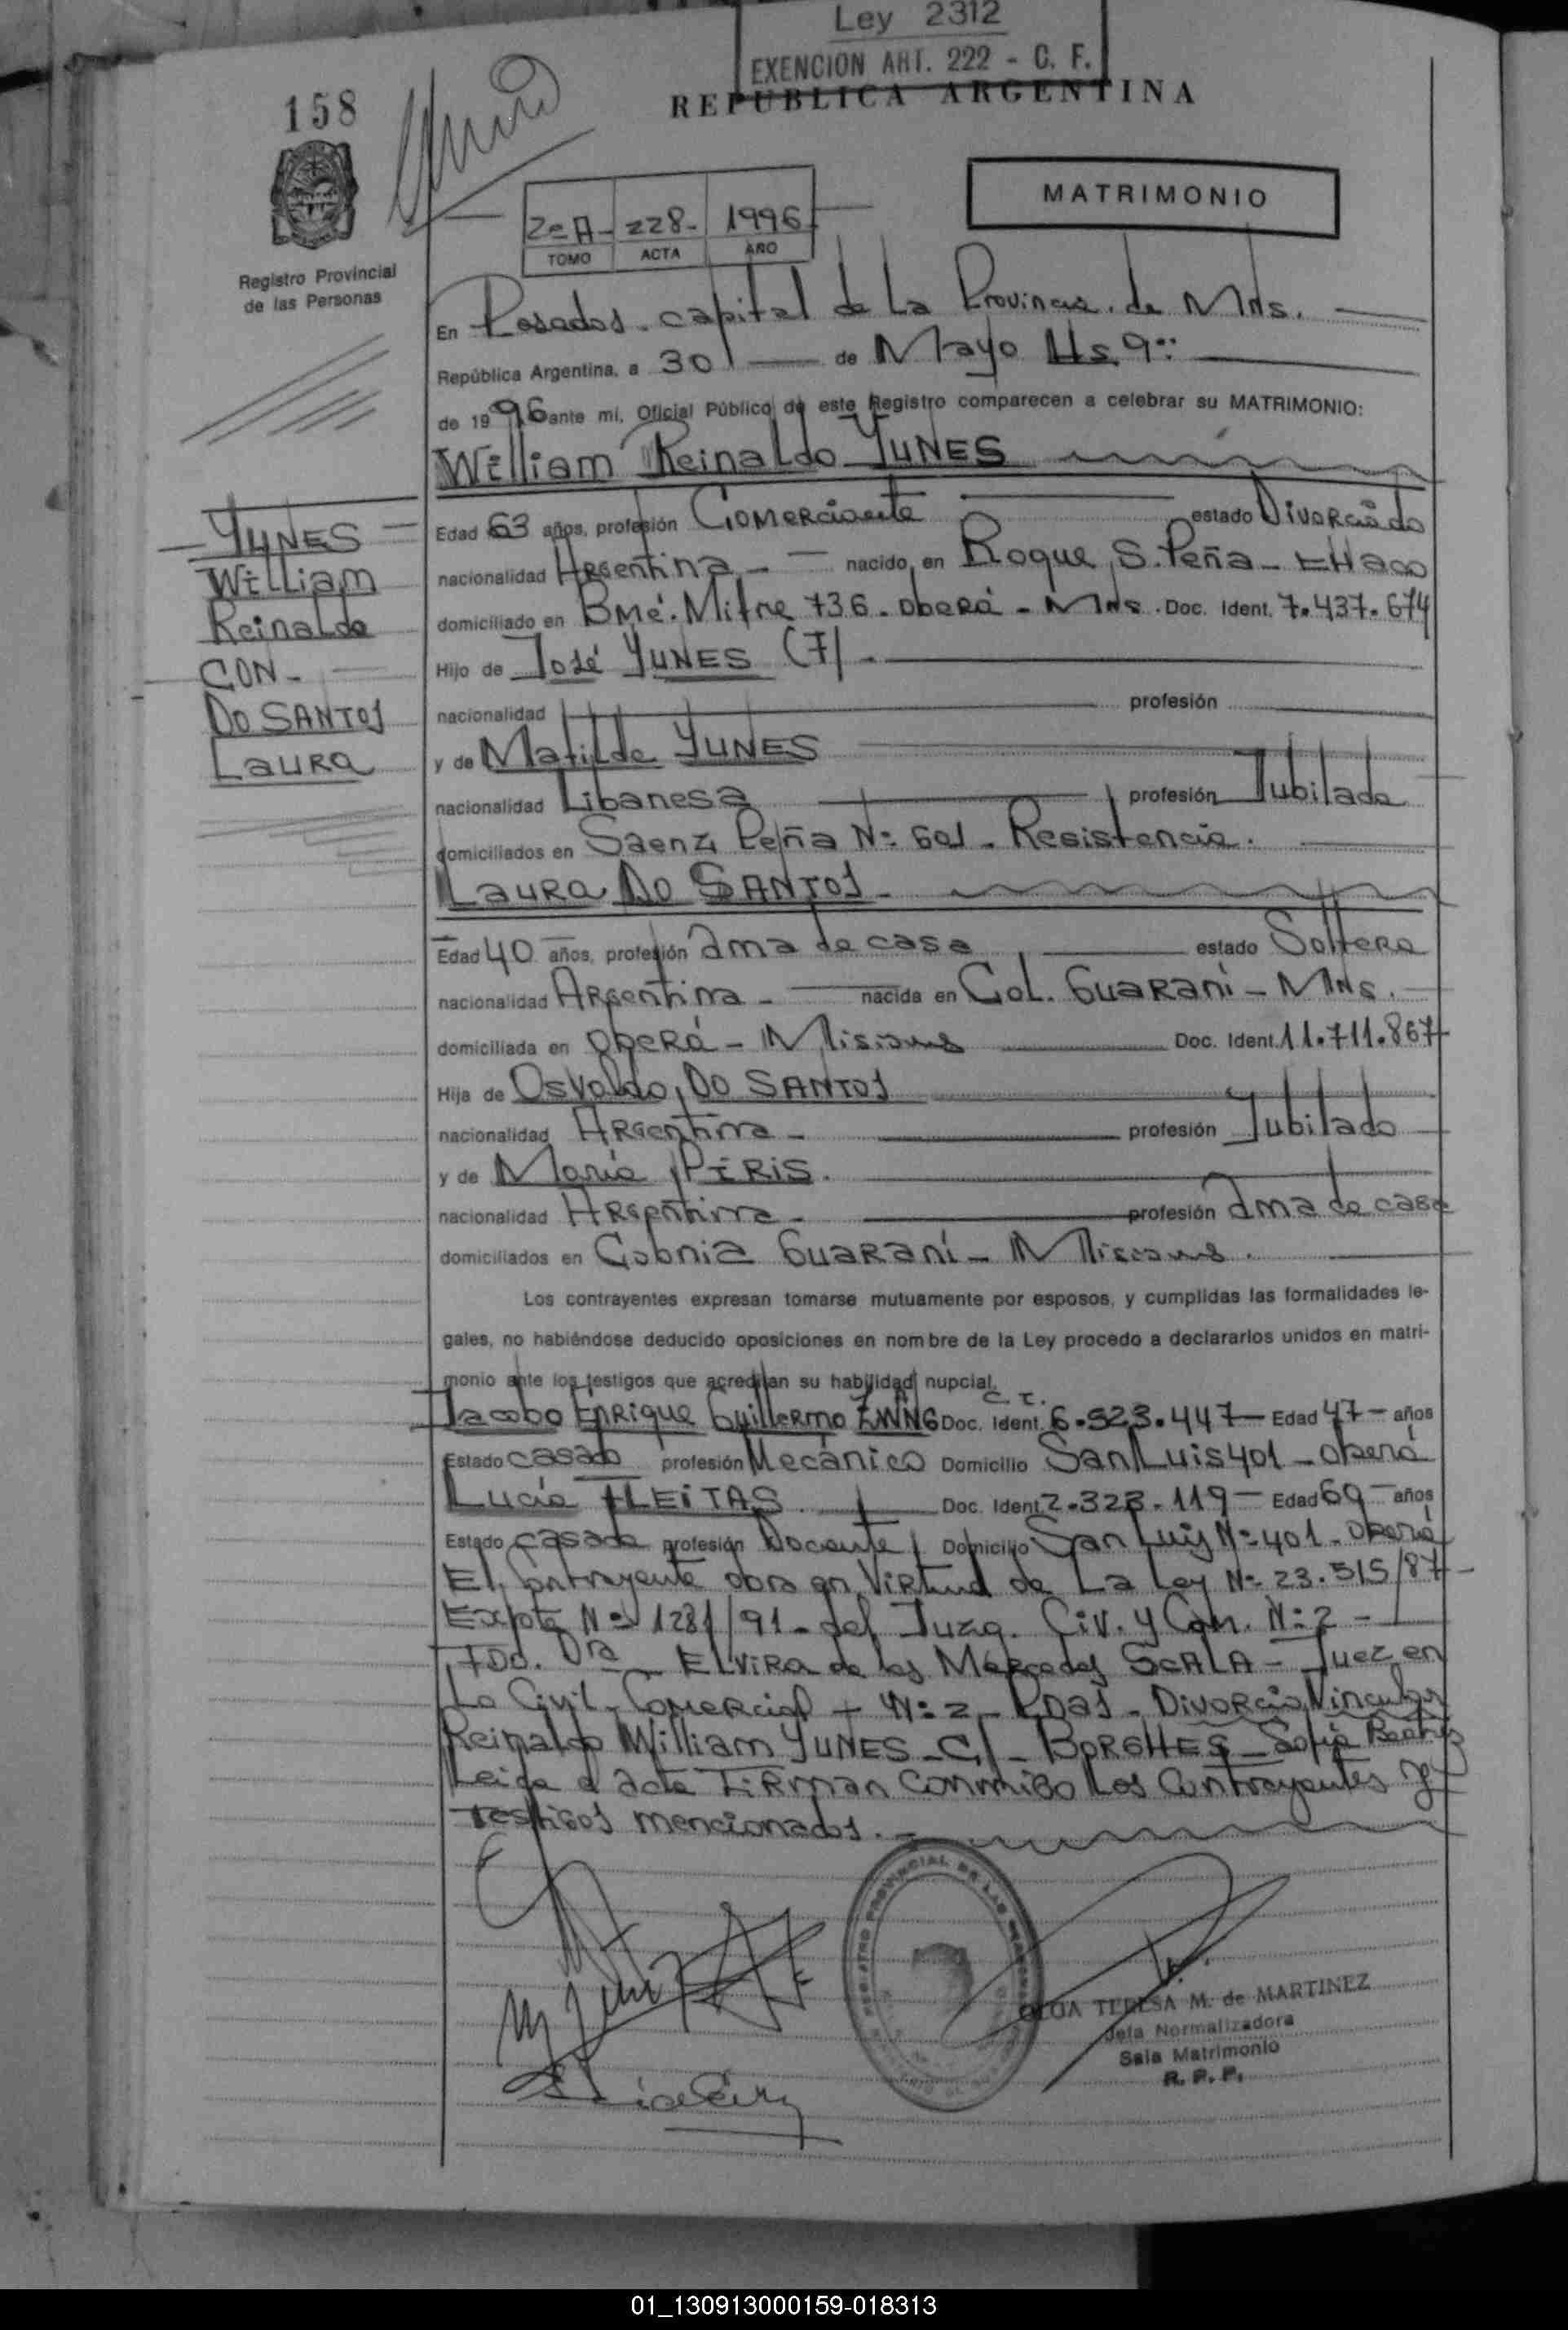 Ley 2312
EXENCION ART. 222 - C. F.
REPUBLICA ARGENTINA
158
MATRIMONIO
2º A - 228 - 1996
TOMO ACTA AÑO
Registro Provincial
de las Personas
En Posadas. capital de La Provincia. de Mnes.
República Argentina, a 30 de Mayo Hs 9::
de 1996 ante mi, Oficial Público de este Registro comparecen a celebrar su MATRIMONIO:
William Reinaldo YUNES
YUNES
William
Reinaldo
CON -
DO SANTOS
Laura
Edad 63 años, profesión Comerciante estado Divorciado
nacionalidad Argentina - nacido en Roque S. Peña - CHaco
domiciliado en Bmé. Mitre 736 - Oberá - Mnes. Doc. Ident. 7.437.674
Hijo de José YUNES (F) -
nacionalidad profesión
y de Matilde YUNES
nacionalidad Libanesa profesión Jubilada
domiciliados en Saenz Peña Nº 601 - Resistencia.
Laura DO SANTOS -
Edad 40 años, profesión ama de casa estado Soltera
nacionalidad Argentina - nacida en Col. Guaraní - Mnes.
domiciliada en Oberá - Misiones Doc. Ident. 11.711.867
Hija de Osvaldo DO SANTOS
nacionalidad Argentina - profesión Jubilado
y de María PIRIS.
nacionalidad Argentina - profesión ama de casa
domiciliados en Colonia Guaraní - Misiones.
Los contrayentes expresan tomarse mutuamente por esposos, y cumplidas las formalidades le-
gales, no habiéndose deducido oposiciones en nombre de la Ley procedo a declararlos unidos en matri-
monio ante los testigos que acreditan su habilidad nupcial.
Jacobo Enrique Guillermo Doc. Ident. C. I. 6.523.447 - Edad 47 - años
Estado casado profesión Mecánico Domicilio San Luis 401 - Oberá
Lucía FLEITAS. Doc. Ident. 2.323.119 - Edad 69 - años
Estado casada profesión Docente Domicilio San Luis Nº 401 - Oberá
El Contrayente obra en Virtud de La Ley Nº 23.515/87 -
Expte Nº 1281/91 - del Juzg. Civ. y Com. Nº 2 -
FDO. Dra - ELVIRA de las Mercedes SCALA - Juez en
Lo Civil - Comercial - Nº 2 - Pdas - Divorcio Vincular
Reinaldo William YUNES - C/ - BORGHES - Sofia Beatriz
Leida el acta FIRMAN conmigo Los Contrayentes y
testigos mencionados. -
OLGA TERESA M. de MARTINEZ
Jefa Normalizadora
Sala Matrimonio
R. P. P.
01_130913000159-018313